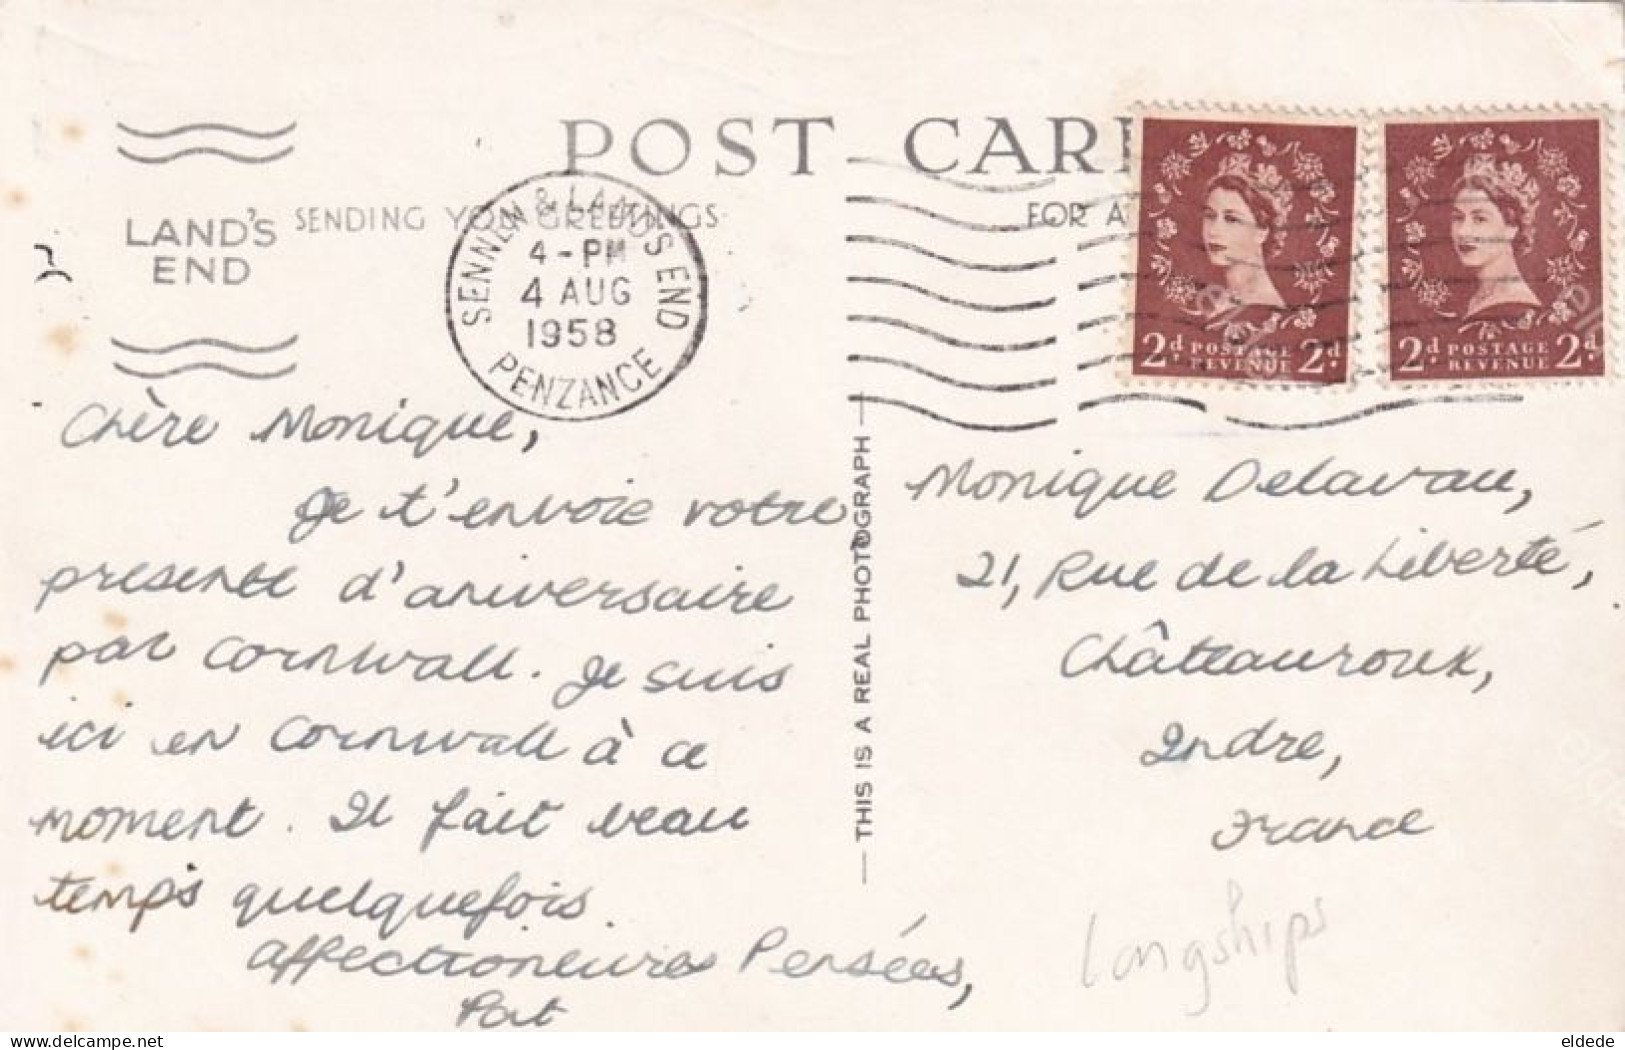 POST CAR
LAND'S
END
SENDING YOU GREETINGS
FOR A
SENNEN & LAND'S END
4-PM
4 AUG
1958
PENZANCE
2d POSTAGE 2d.
REVENUE
2d POSTAGE 2d.
REVENUE
Chère Monique,
Je t'envoie votre
presente d'aniversaire
par Cornwall. Je suis
ici en Cornwall à ce
moment. Il fait beau
temps quelquefois.
Affectioneures Pensées,
Pat
— THIS IS A REAL PHOTOGRAPH —
Monique Delavau,
21, Rue de la Liberté,
Châteauroux,
Indre,
France
Longships
delcampe.net
eldede